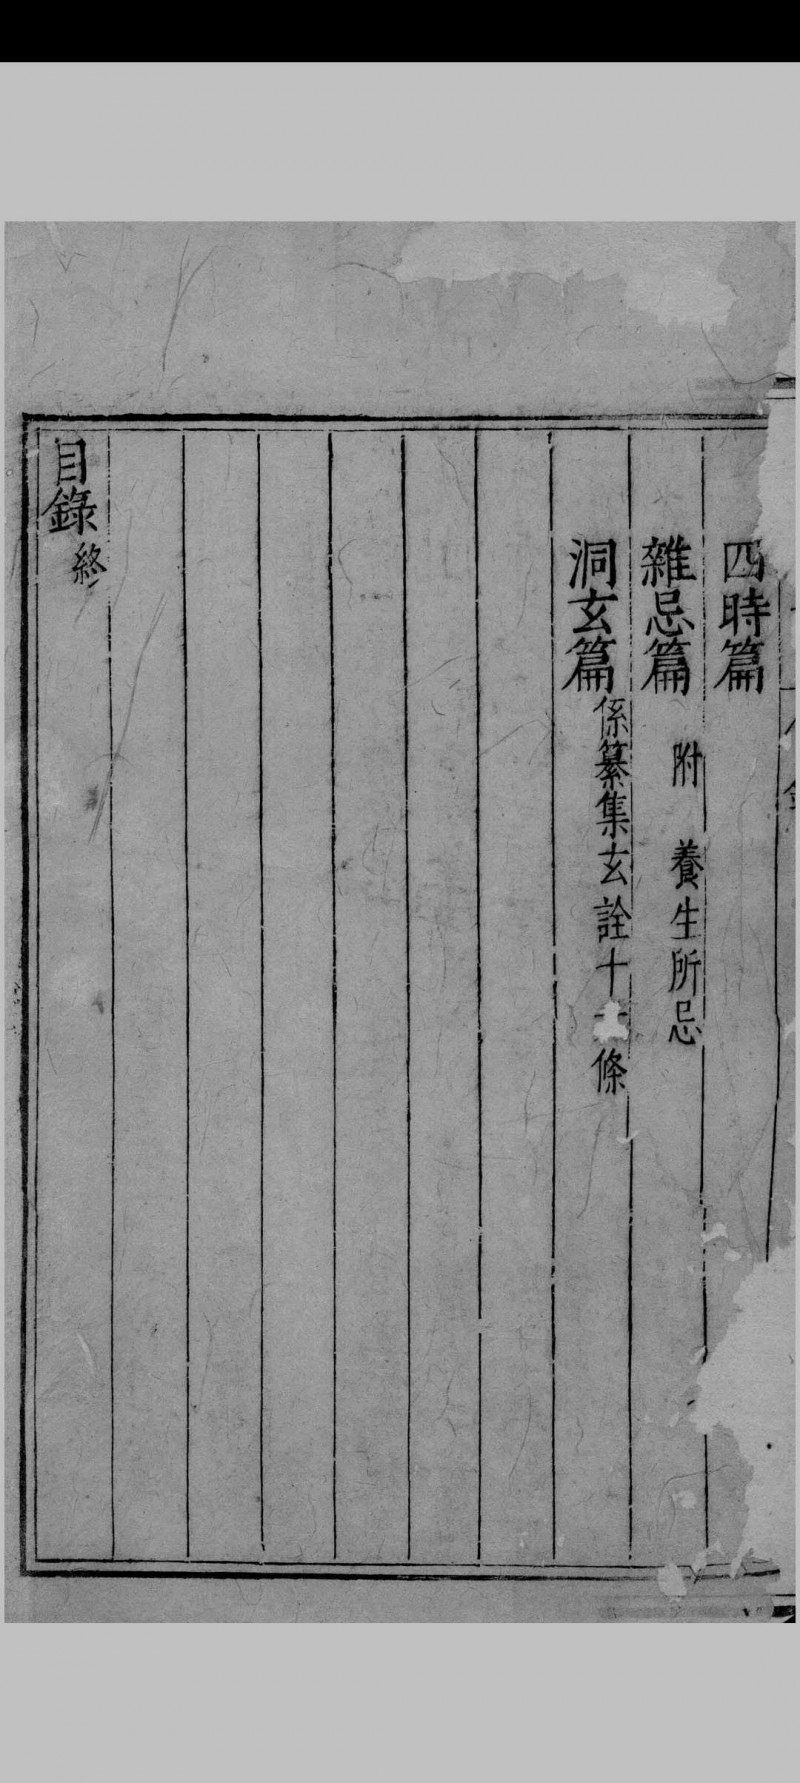 四時篇
雜忌篇 附 養生所忌
洞玄篇 係纂集玄詮十 條
目錄終